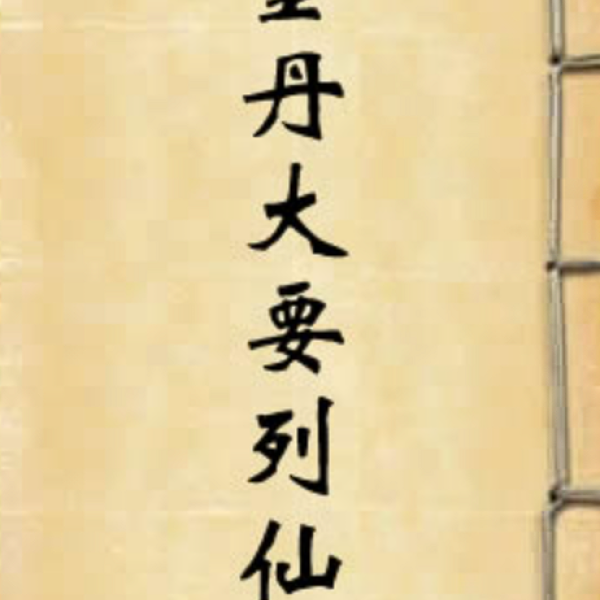 丹大要列仙